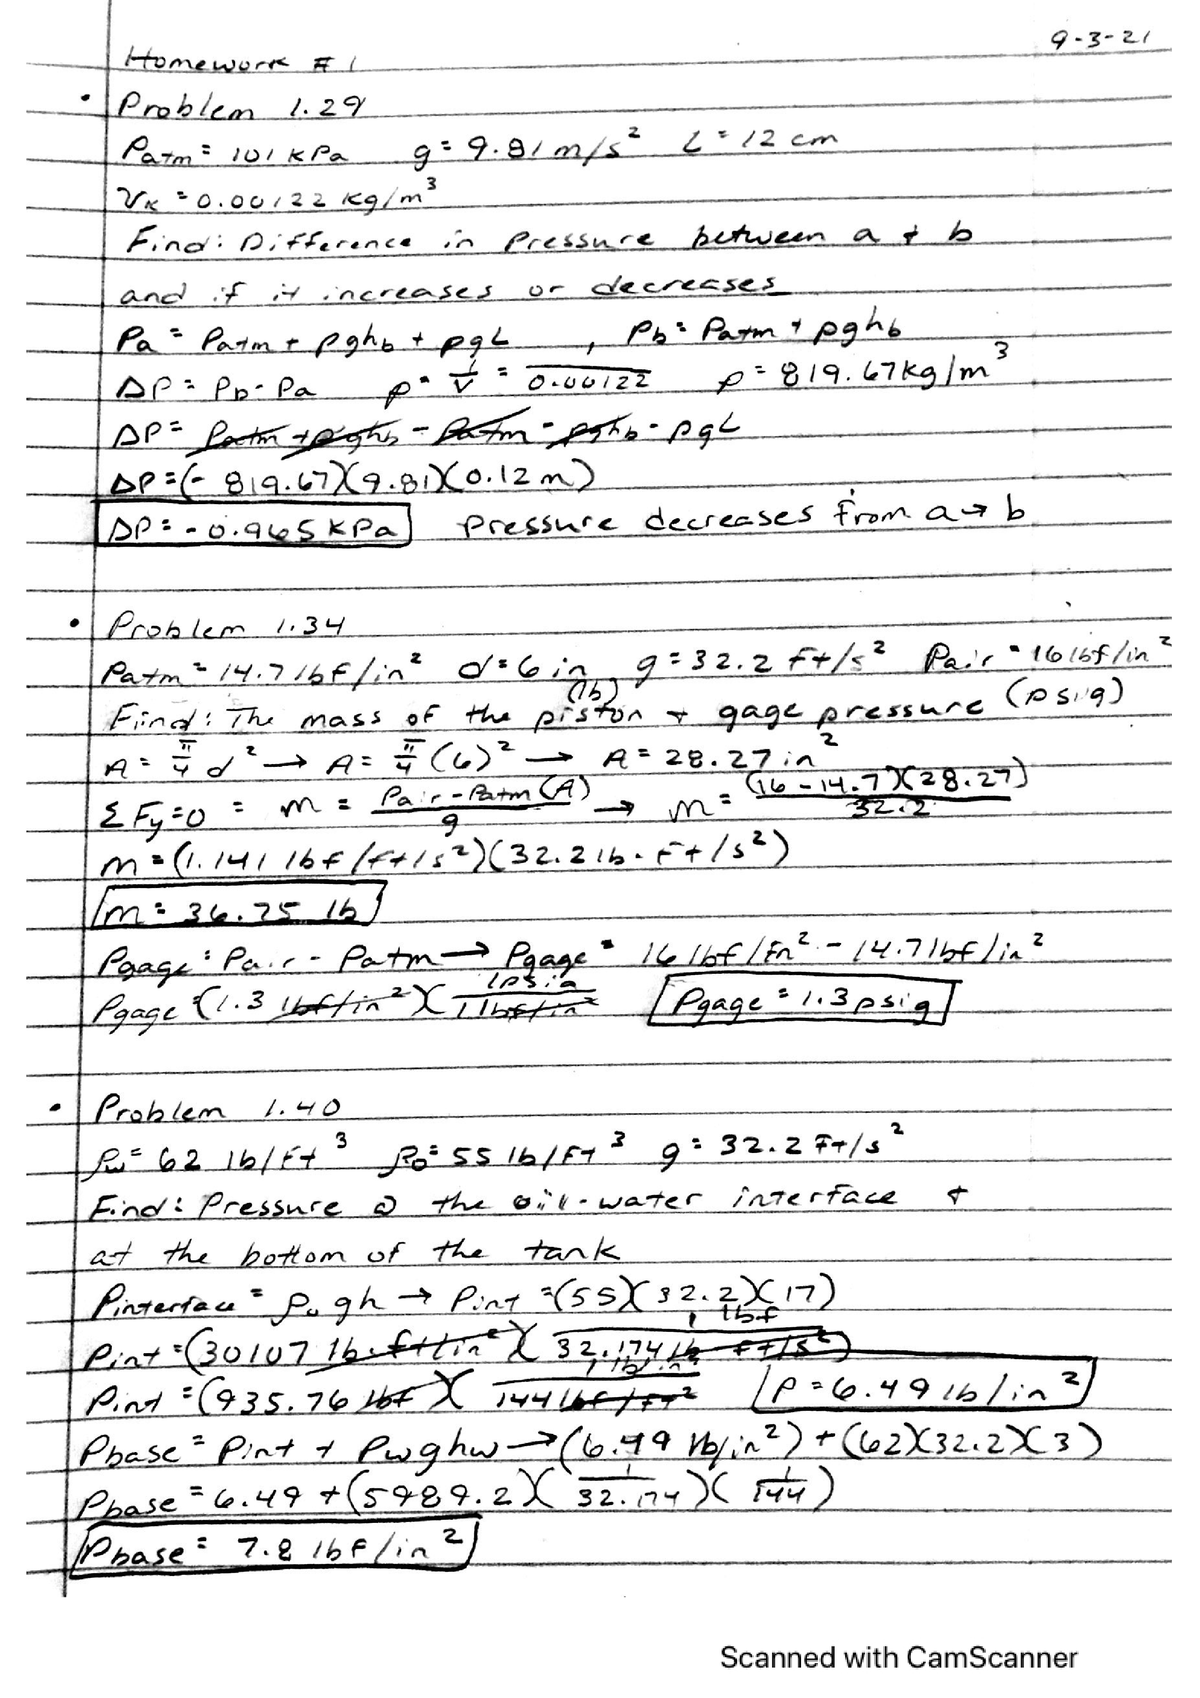 9-3-21
Homework # 1
• Problem 1.29
Patm = 101 kPa g = 9.81 m/s² L = 12 cm
Vk = 0.00122 kg/m³
Find: Difference in Pressure between a & b
and if it increases or decreases
Pa = Patm + ρghb + ρgL , Pb = Patm + ρghb
ΔP = Pb - Pa ρ = 1/V = 1/0.00122 ρ = 819.67 kg/m³
ΔP = Patm + ρghb - Patm - ρghb - ρgL
ΔP = (- 819.67)(9.81)(0.12 m)
ΔP = -0.965 kPa Pressure decreases from a → b
• Problem 1.34
Patm = 14.7 lbf/in² d = 6 in g = 32.2 ft/s² Pair = 16 lbf/in²
Find: The mass of the piston (lb) + gage pressure (psig)
A = π/4 d² → A = π/4 (6)² → A = 28.27 in²
ΣFy = 0 = m = Pair - Patm (A)/g → m = (16 - 14.7)(28.27)/32.2
m = (1.141 lbf/ft/s²)(32.2 lb·ft/s²)
m = 36.75 lb
Pgage = Pair - Patm → Pgage = 16 lbf/in² - 14.7 lbf/in²
Pgage = (1.3 lbf/in²)(1 psia/1 lbf/in²) Pgage = 1.3 psig
• Problem 1.40
ρw = 62 lb/ft³ ρo = 55 lb/ft³ g = 32.2 ft/s²
Find: Pressure @ the oil-water interface &
at the bottom of the tank
Pinterface = ρogh → Pint = (55)(32.2)(17)
Pint = (30107 lb·ft/in²)(1 lbf/32.174 lb ft/s²)
Pint = (935.76 lbf)(1 lb/in²/144 lbf/ft²) P = 6.49 lb/in²
Pbase = Pint + Pwghw → (6.49 lb/in²) + (62)(32.2)(3)
Pbase = 6.49 + (5989.2)(1/32.174)(1/144)
Pbase = 7.8 lbf/in²
Scanned with CamScanner